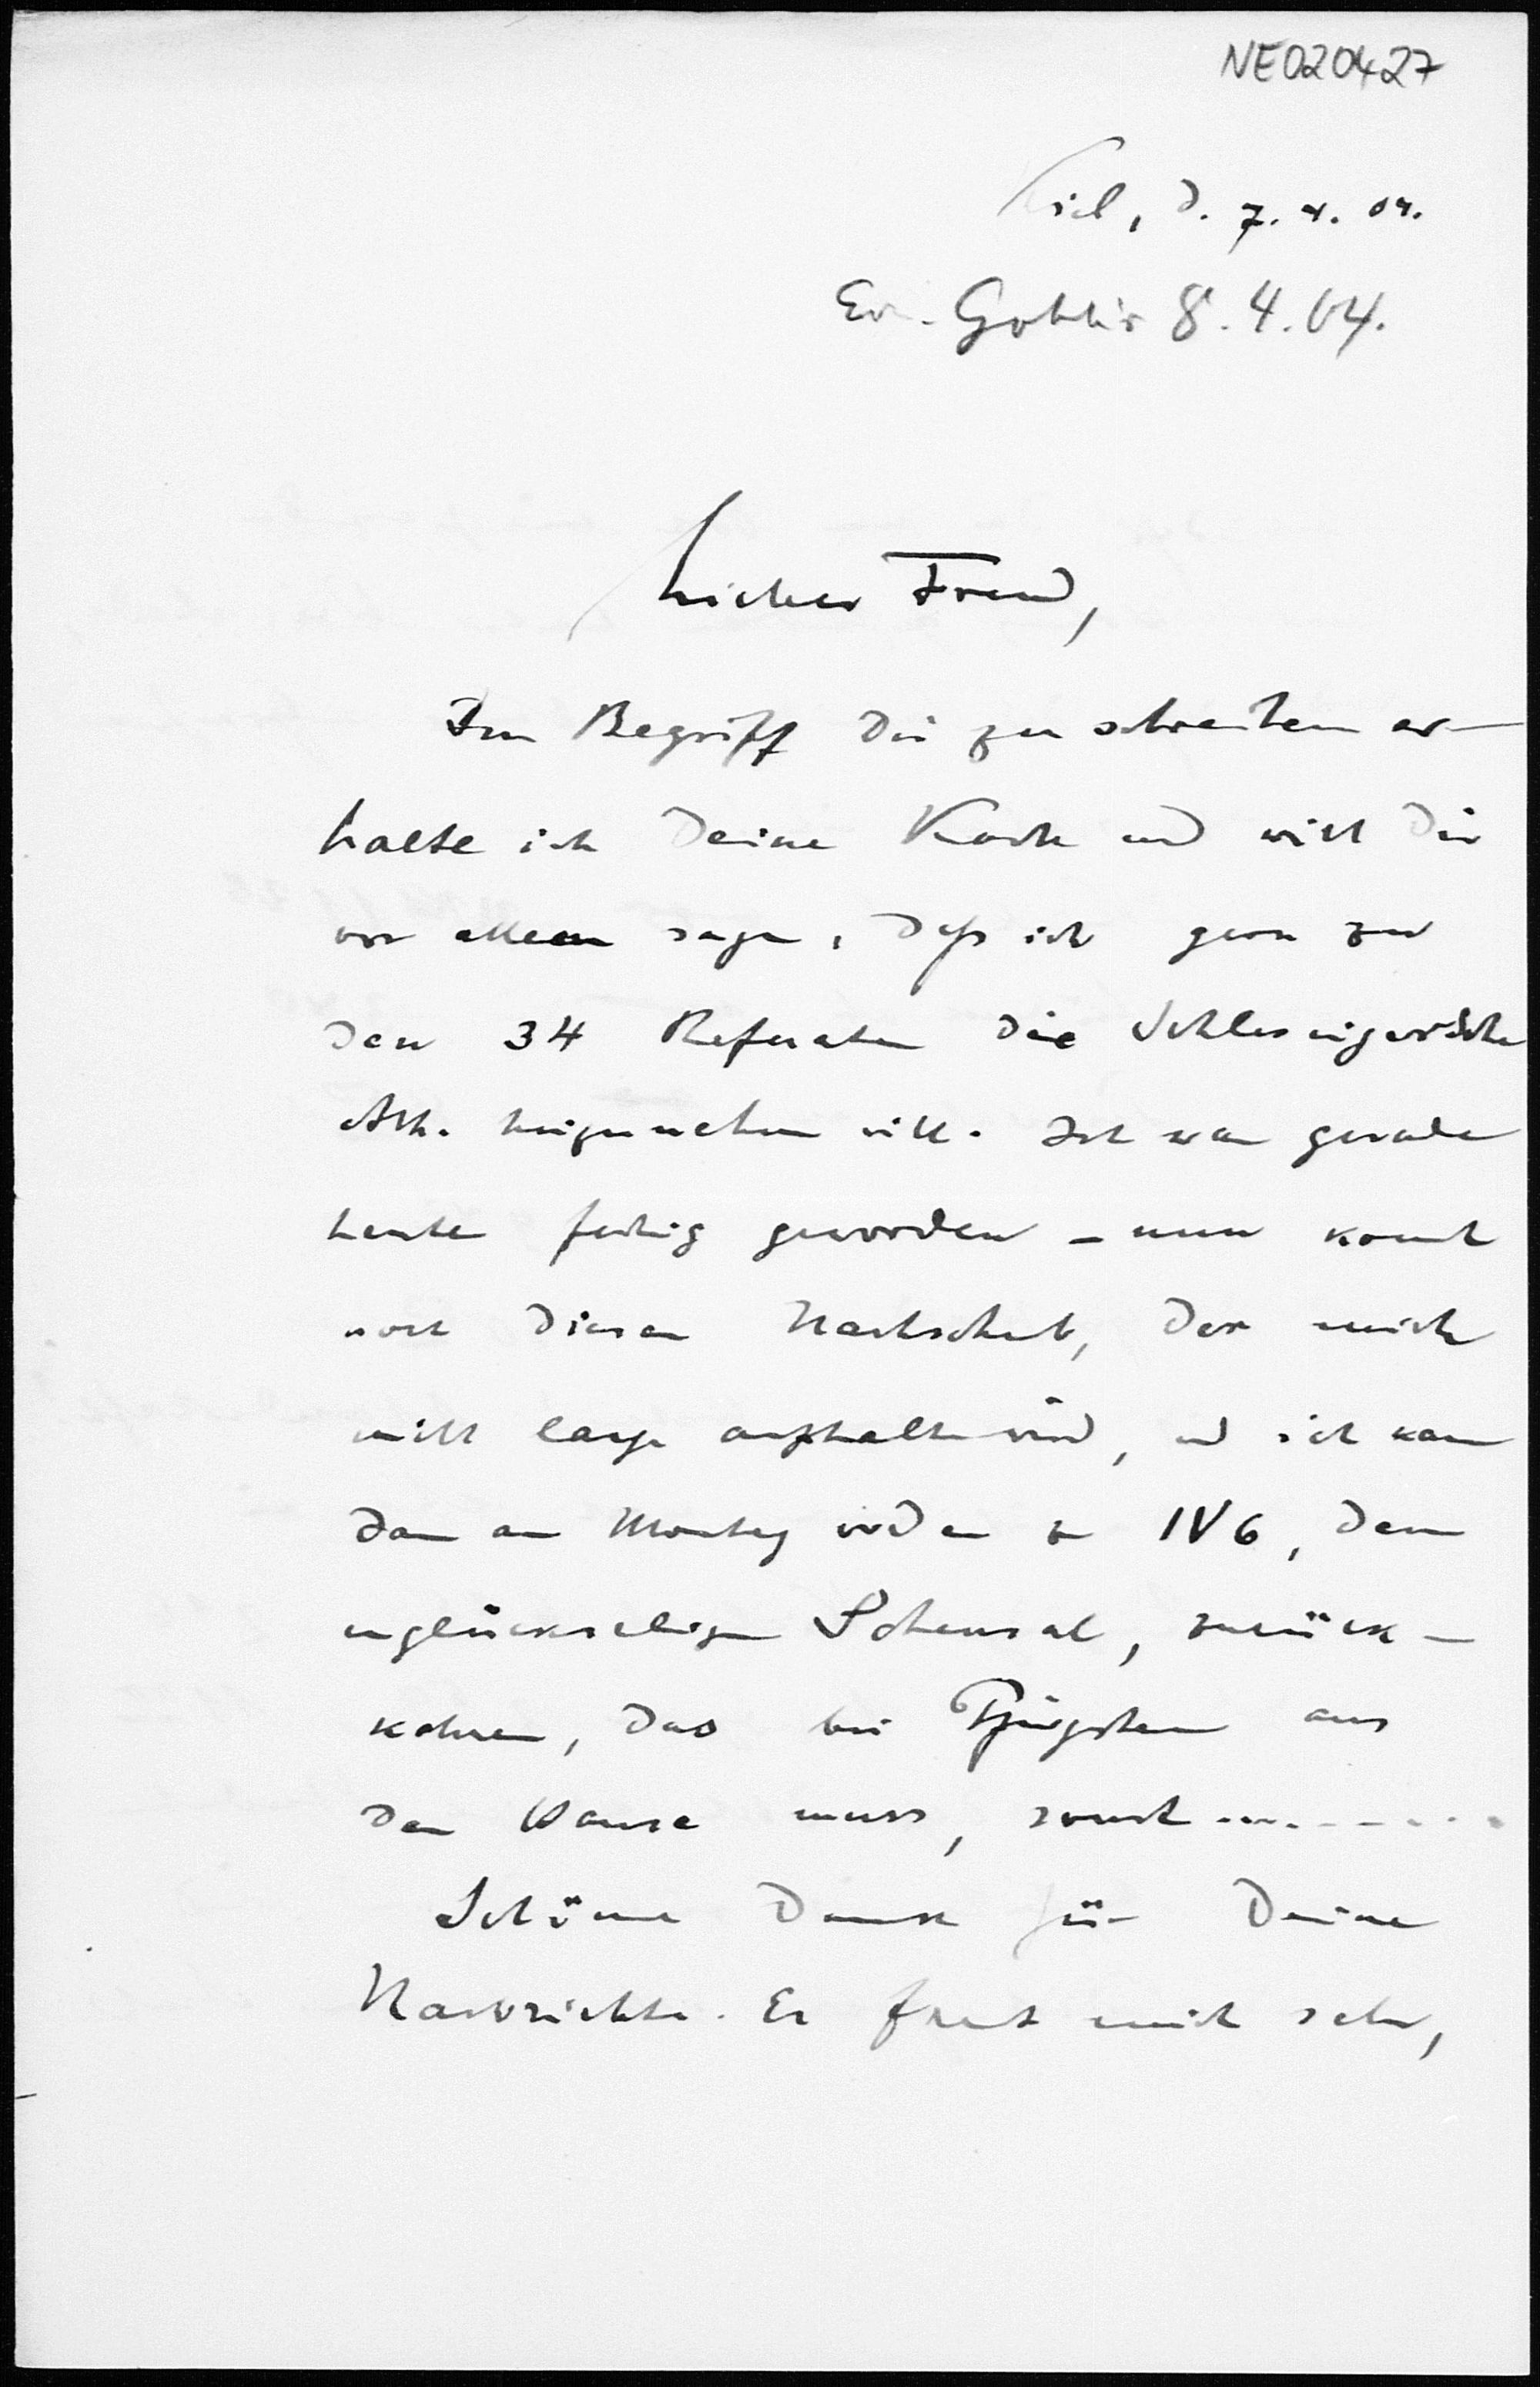 NE020427
Kiel, d. 7. 4. 04.
Gohlis 8. 4. 04.
Lieber Freund,
Im Begriff Dir zu schreiben er-
halte ich Deine Karte und will Dir
vor allem sagen, daß ich gern zu
den 34 Referaten die Schlesinger'sche
Abh. hinzunehmen will. Ich war gerade
heute fertig geworden – nun kommt
noch dieser Nachschub, der mich
nicht lange aufhalten wird, und ich kann
dann am Montag wieder zu IV 6, dem
unglückseligen Scheusal, zurück-
kehren, das bis Pfingsten aus
dem Hause muss, sonst ........
Schönen Dank für Deine
Nachrichten. Es freut mich sehr,